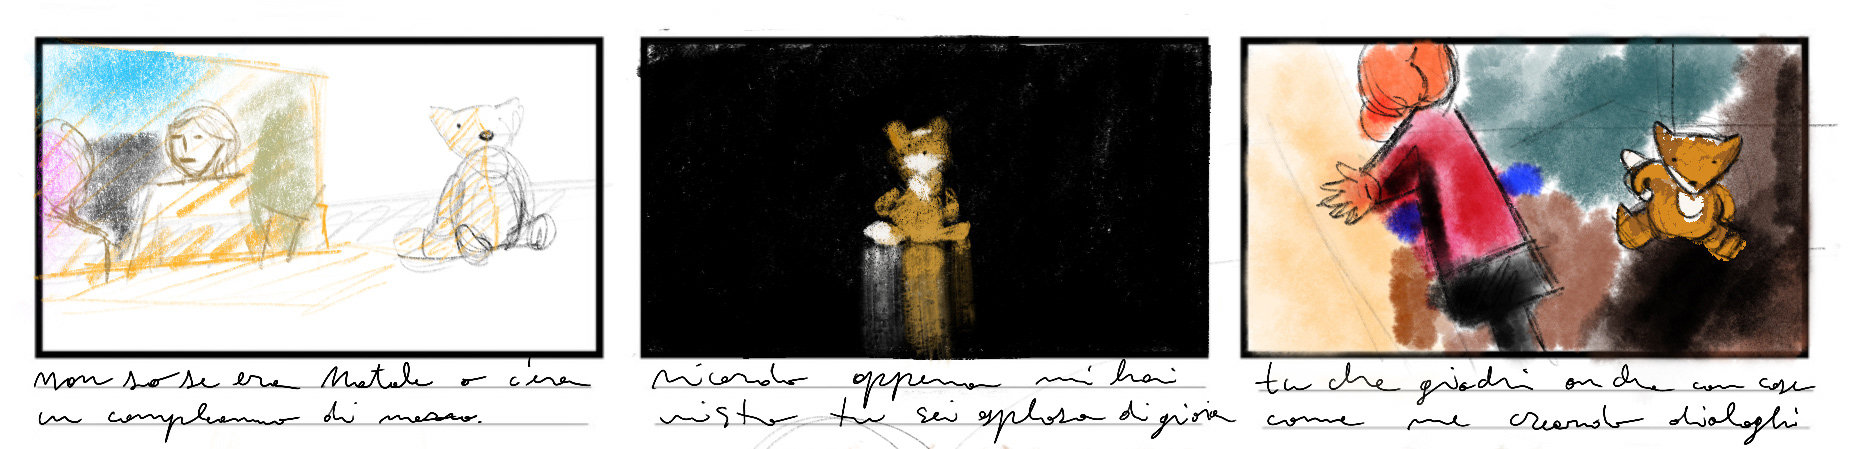 non so se era Natale o c'era
un compleanno di mezzo.
ricordo appena mi hai
visto tu sei esplosa di gioia
tu che giochi anche con cose
come me creando dialoghi